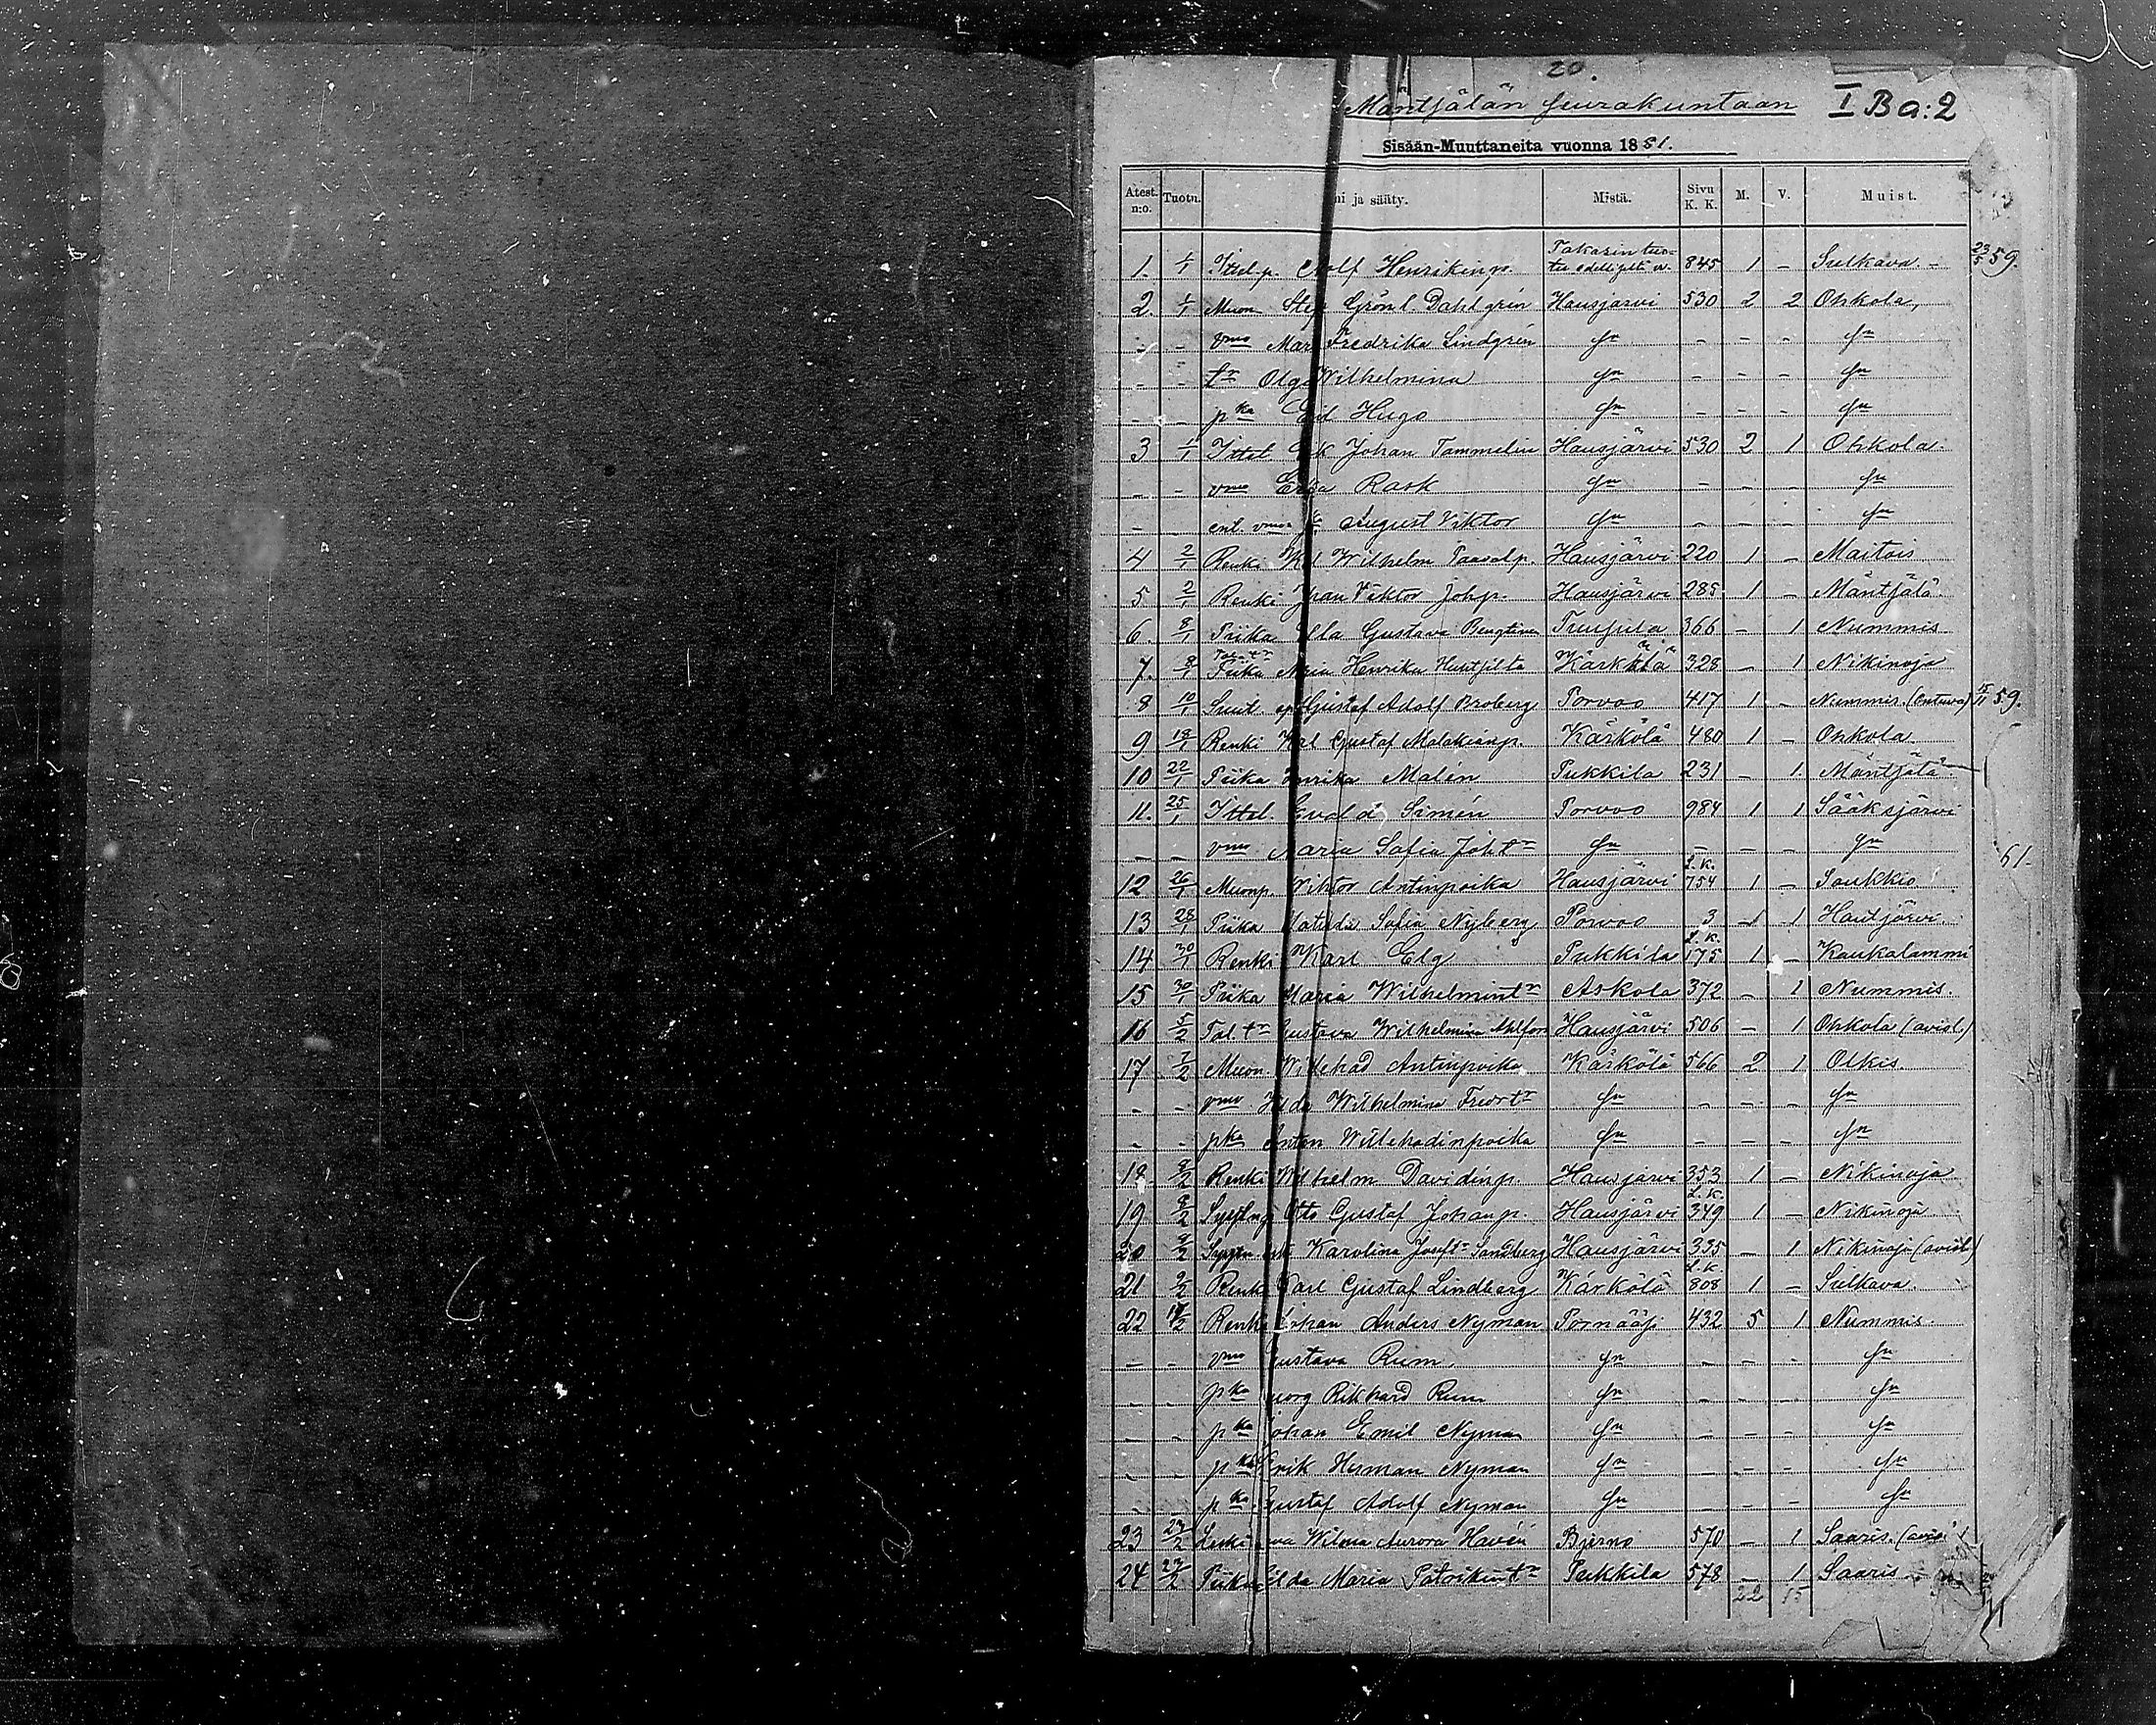 20.
Mäntsälän seurakuntaan I Ba:2
Sisään-Muuttaneita vuonna 1881.
Atest. n:o. Tuotu. ni ja sääty. Mistä. Sivu K. K. M. V. Muist.
1. 1/1 Itsel.p. Adolf Henrikinp. Takasin tuotu 845 1 - Sulkava - 23/5 59.
2. 1/1 Muon Grönl. Dahlgrén Hausjärvi 530 2 2 Ohkola,
- - vmo Mar Fredrika Lindgrén sn - - - sn
- - tr Olga Wilhelmina sn - - - sn
- - pka Hugo sn - - - sn
3 1/1 Ittel. Erik Johan Tammelin Hausjärvi 530 2 1 Ohkola.
- - vmo Erika Rask sn - - - sn
- ent. August Viktor sn - - - sn
4 2/1 Renki Wilhelm Paavalp. Hausjärvi 220 1 - Maitois
5 2/1 Renki Johan Viktor Johp. Hausjärvi 285 1 - Mäntsälä.
6. 8/1 Piika Ulla Gustava Tuusula 366 - 1 Nummis
7. 8/1 Tal. tr Piika Maria Henrika Kärkölä 328 - 1 Nikinoja
8 10/1 Suut. Gustaf Adolf Broberg Porvoo 417 1 - Nummis. 59.
9 18/1 Renki Karl Gustaf Malakianp. Kärkölä 480 1 - Ohkola
10 22/1 Piika Henrika Malén Pukkila 231 - 1. Mäntsälä
11. 25/1 Ittel. Evald Simén Porvoo 984 1 1 Sääksjärvi
- - vmo Maria Sofia Joh. tr sn - - - sn
12 26/1 Muonp. Viktor Antinpoika Hausjärvi L.K. 754 1 - Soukkio 61.
13 28/1 Piika Matilda Sofia Nyberg Porvoo 3 1 1 Hautjärvi.
14 30/1 Renki Karl Elg Pukkila L.K. 175 1 - Kaukalammi
15 30/1 Piika Maria Wilhelmintr Askola 372 - 1 Nummis.
16 5/2 Tal. tr Gustava Wilhelmina Hausjärvi 506 - 1 Ohkola (aviol.)
17 7/2 Muon. Willehad Antinpoika Kärkölä 566 2 1 Olkis.
- - vmo Hilda Wilhelmina sn - - - sn
- - pka Anton Willehadinpoika sn - - - sn
18 8/2 Renki Wilhelm Davidinp. Hausjärvi 353 1 - Nikinoja
19 8/2 Otto Gustaf Johanp. Hausjärvi L.K. 349 1 - Nikinoja
20 9/2 Karolina Sandberg Hausjärvi 335 - 1 Nikinoja (aviol.)
21 9/2 Renki Karl Gustaf Lindberg Kärkölä L.K. 808 1 - Sulkava.
22 Renki Johan Anders Nyman Pornääsi 432 5 1 Nummis.
- - vmo Gustava Rum. sn - - - sn
- - pka Georg Rikhard Rum sn - - - sn
- - pka Johan Emil Nyman sn - - - sn
- - pka Erik Herman Nyman sn - - - sn
- pka Gustaf Adolf Nyman sn - - - sn
23 23/2 Leski Eva Wilma Aurora Havén Bjerno 570 - 1 Saaris. (aviol.)
24 27/2 Piika Hilda Maria Pukkila 578 - 1 Saaris
22 15